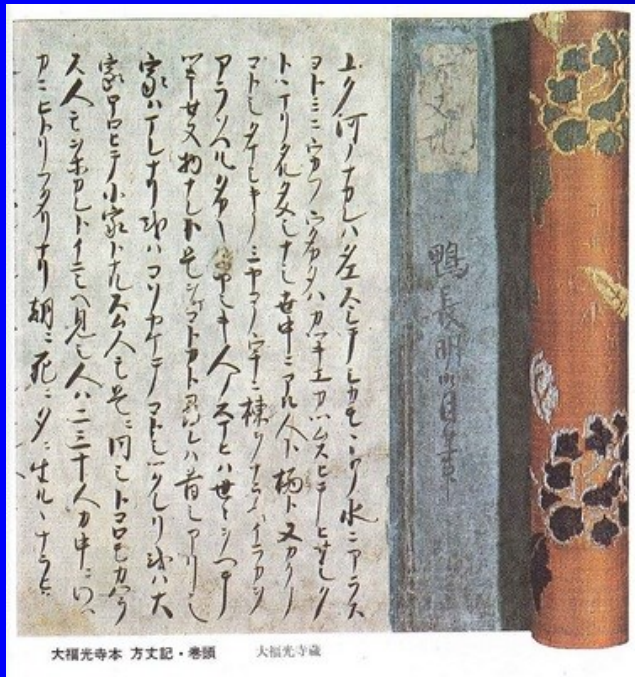 方丈記
鴨長明自筆
ユク河ノナカレハタエスシテシカモヽトノ水ニアラス
ヨトミニウカフウタカタハカツキエカツムスヒテヒサシク
トヽマリタルタメシナシ世中ニアル人ト栖ト又カクノ
コトシタマシキノミヤコノウチニ棟ヲナラヘイラカヲ
アラソヘルタカキイヤシキ人ノスマヒハ世々ヲヘテ
ツキセヌ物ナレト是ヲマコトカト尋レハ昔シアリシ
家ハマレナリ或ハコソヤケテコトシツクレリ或ハ大
家ホロヒテ小家トナルスム人モ是ニ同シトコロモカハラ
ス人モオホカレトイニシヘ見シ人ハ二三十人カ中ニワツ
カニヒトリフタリナリ朝ニ死ニ夕ニ生ルヽナラヒ
大福光寺本 方丈記・巻頭 大福光寺蔵